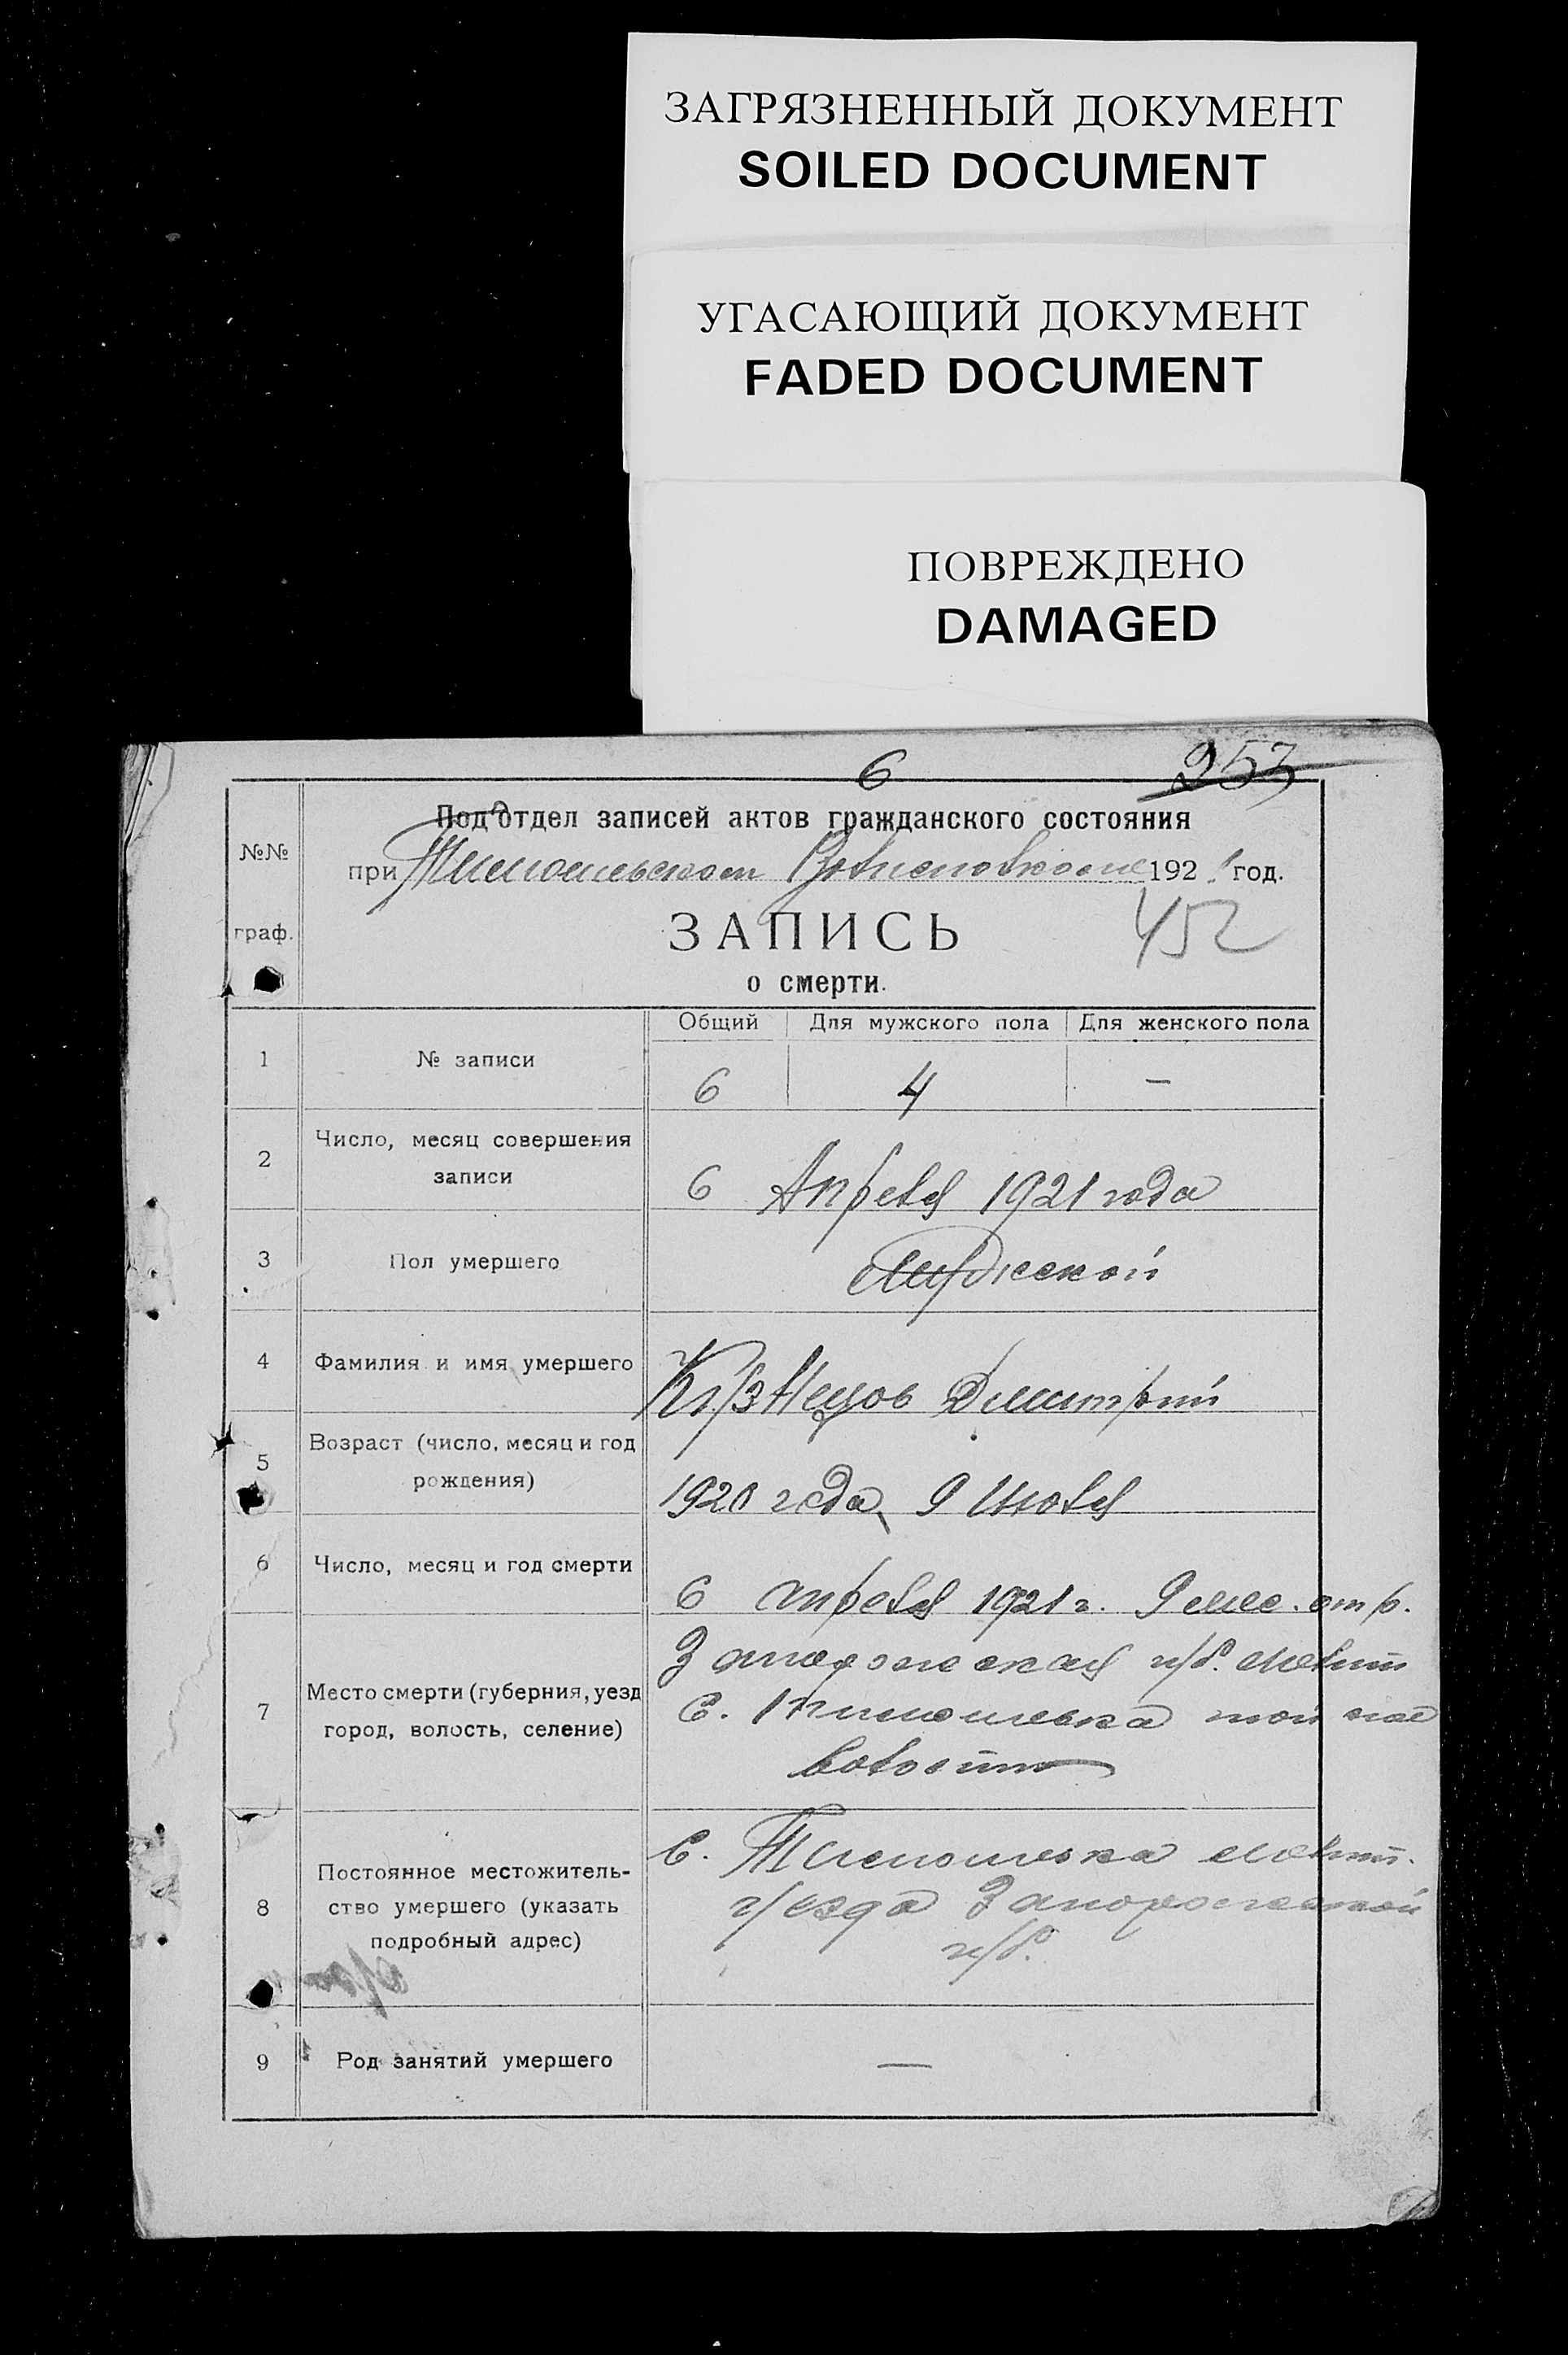 ЗАГРЯЗНЕННЫЙ ДОКУМЕНТ
SOILED DOCUMENT
УГАСАЮЩИЙ ДОКУМЕНТ
FADED DOCUMENT
ПОВРЕЖДЕНО
DAMAGED
6 253
Под'отдел записей актов гражданского состояния
№№
при Тимошевском Волисполкоме 1921 год.
граф.
ЗАПИСЬ 452
о смерти.
Общий Для мужского пола Для женского пола
1 № записи 6 4 —
2 Число, месяц совершения
записи 6 Апреля 1921 года
3 Пол умершего Мужской
4 Фамилия и имя умершего Кузнецов Димитрий
5 Возраст (число, месяц и год
рождения) 1920 года, 9 Июля
6 Число, месяц и год смерти 6 апреля 1921 г. 9
Запорожская губ. Мелит
7 Место смерти (губерния, уезд
город, волость, селение) С. Тимошевка той же
волости
8 Постоянное местожитель-
ство умершего (указать
подробный адрес) С. Тимошевка Мелит.
уезда Запорожской
губ.
9 Род занятий умершего —